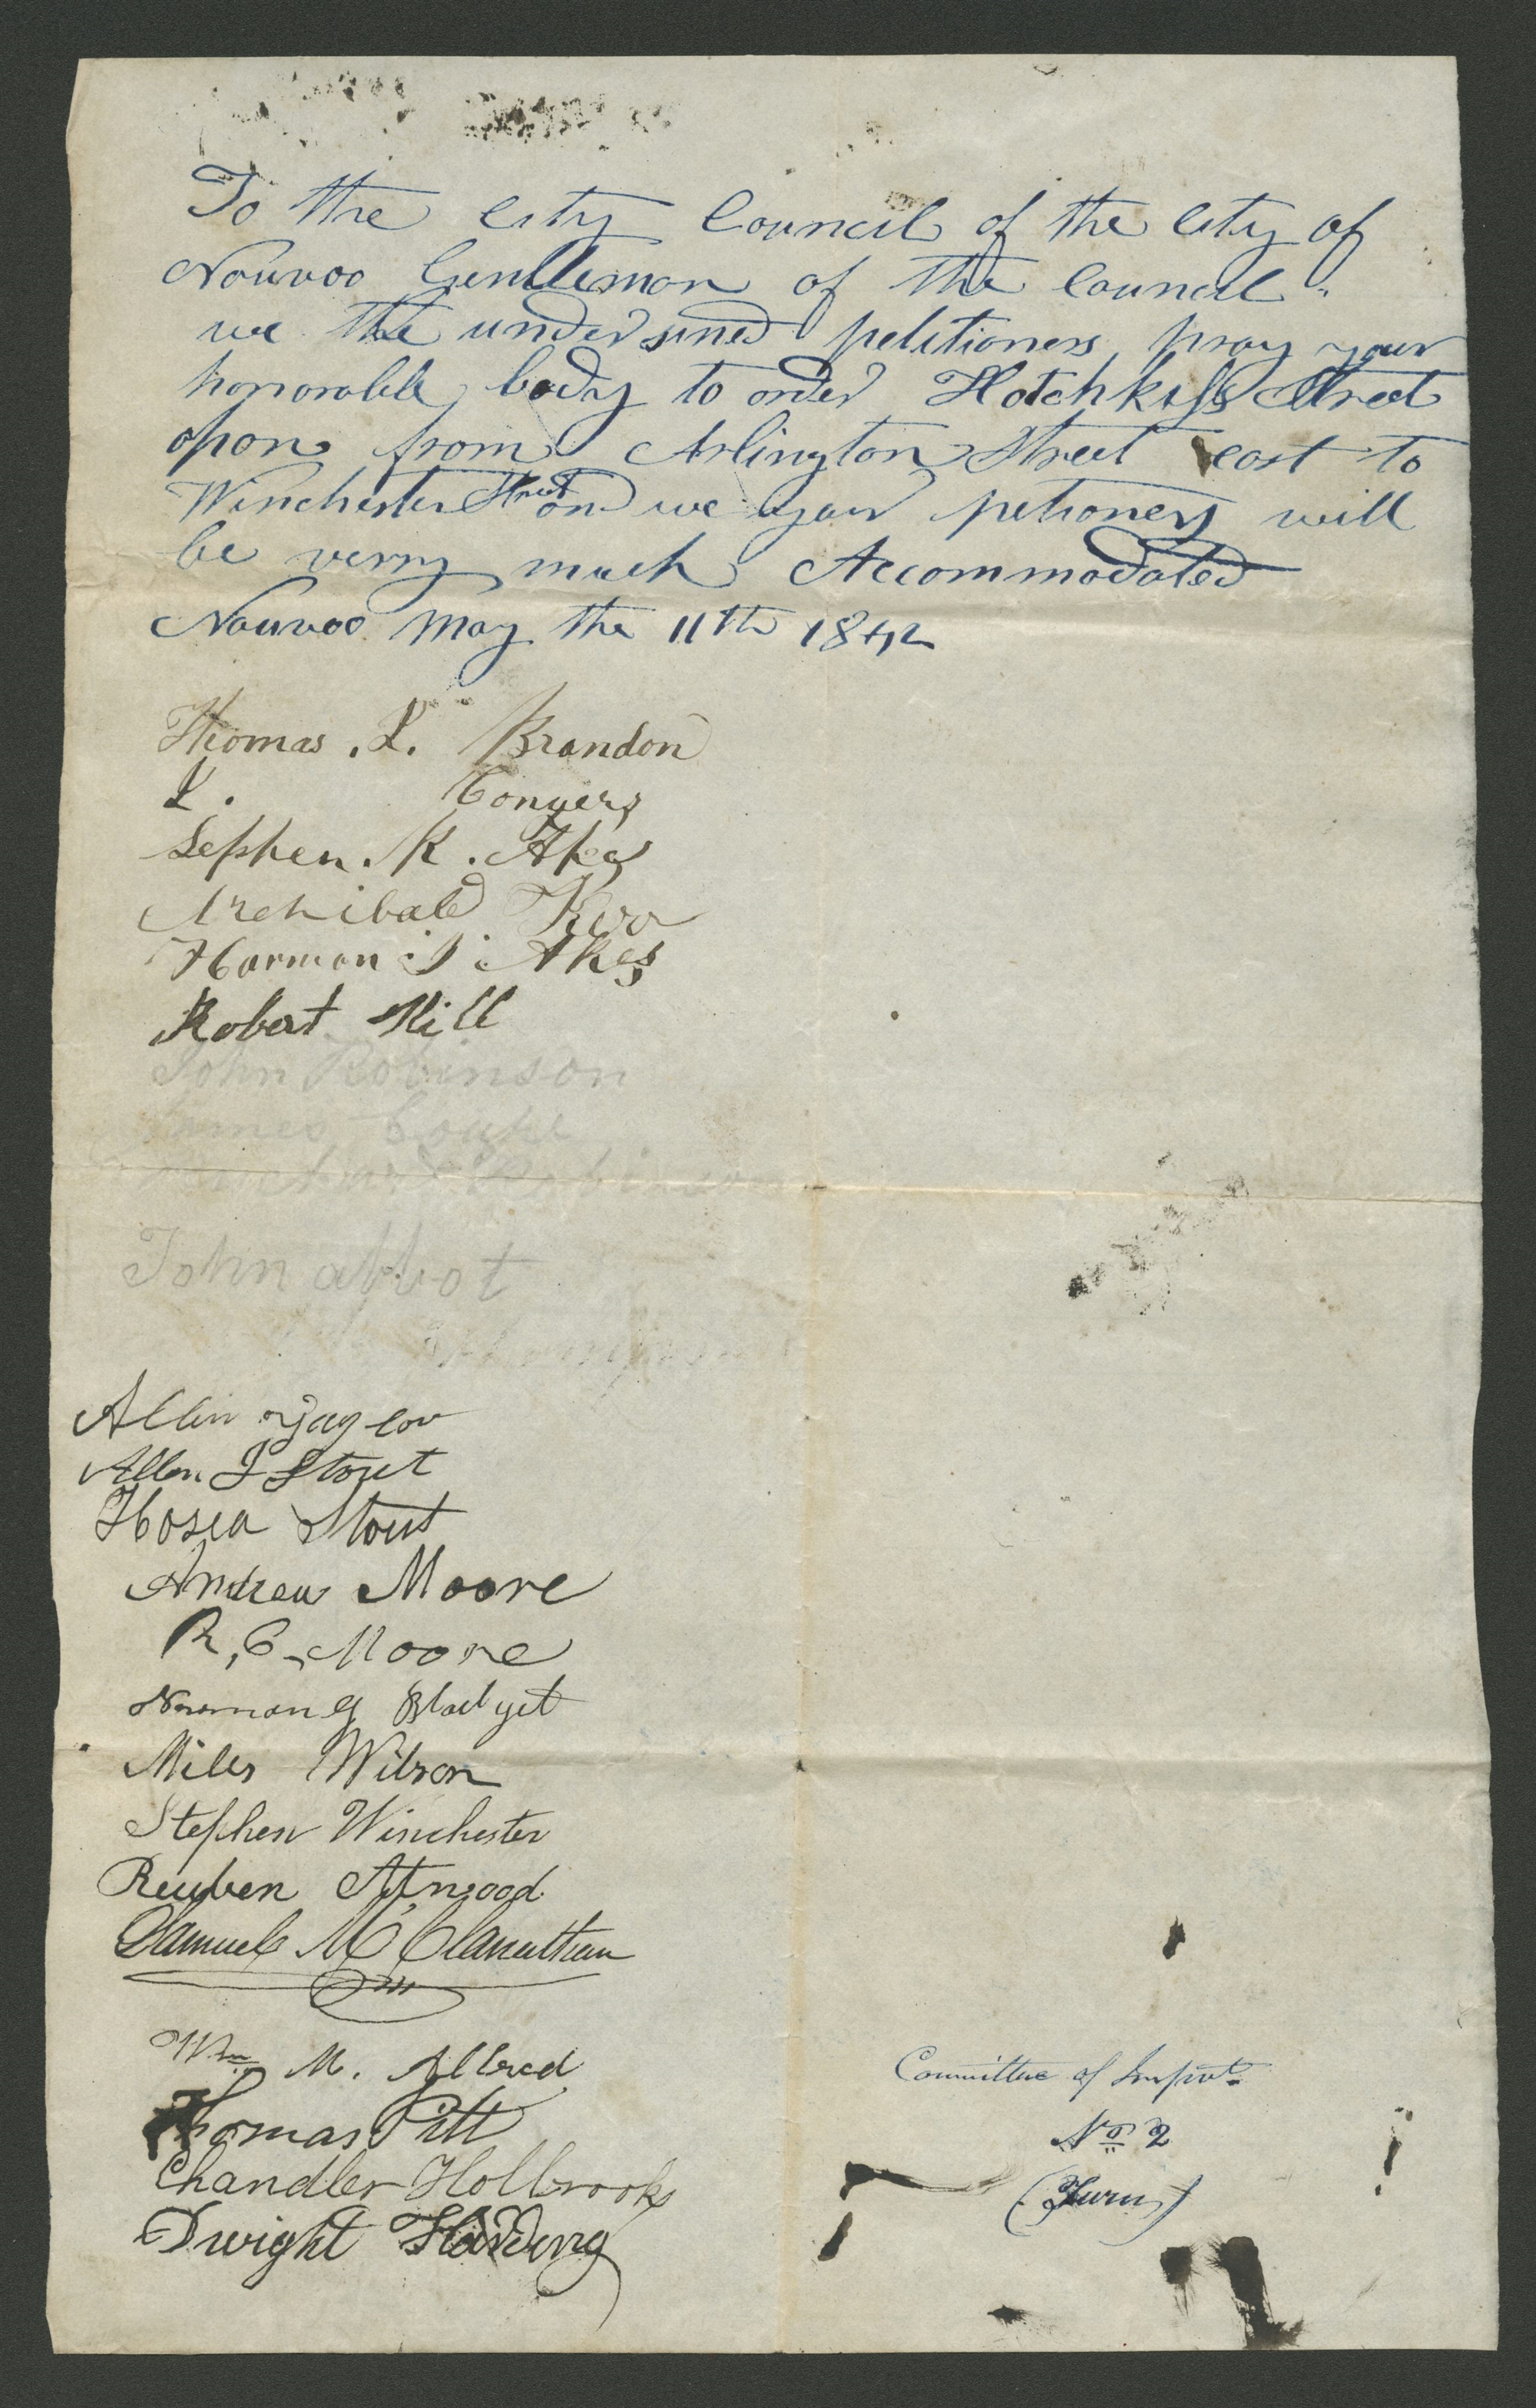 To the City Council of the City of
Nauvoo Gentleman of the Council
we the undersined petitioners pray your
honorable body to order Hotchkiss Street
opon from Arlington Street east to
Winchester Street and we your petioners will
be verry much Accommodated
Nauvoo May the 11th 1842
Thomas . J. Brandon
J. Conyers
Sephen . K . Akes
Archibald Kerr
Harmon J. Akes
Robert Hill
John Robinson
James
Robinson
John abbot
Allin
Allen J Stout
Hosea Stout
Andrew Moore
R, C. Moore
Newman G Blodget
Miles Wilson
Stephen Winchester
Reuben Atwood
Samuel Mc,Clanathan
Wm M. Allred
Thomas Pitt
Chandler Holbrook
Dwight Harding
Committee of Impvts.
No 2
(Turn)